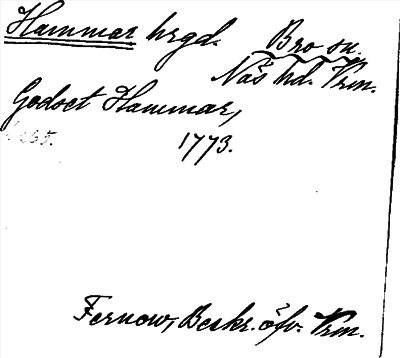 Hammar hrgd. Bro sn.
Näs hd. Vrm.
Godset Hammar,
1773.
Fernow, Beskr. öfv. Vrm.